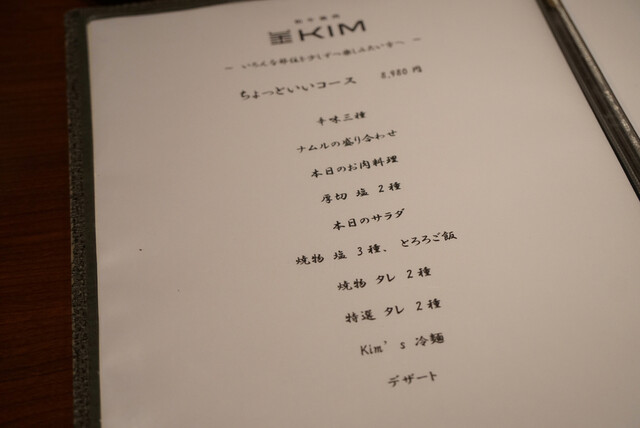 KIM
～ いろんな部位を少しずつ楽しみたい方へ ～
ちょっといいコース 8,980円
辛味三種
ナムルの盛り合わせ
本日のお肉料理
厚切 塩 2種
本日のサラダ
焼物 塩 3種、とろろご飯
焼物 タレ 2種
特選 タレ 2種
Kim's 冷麺
デザート